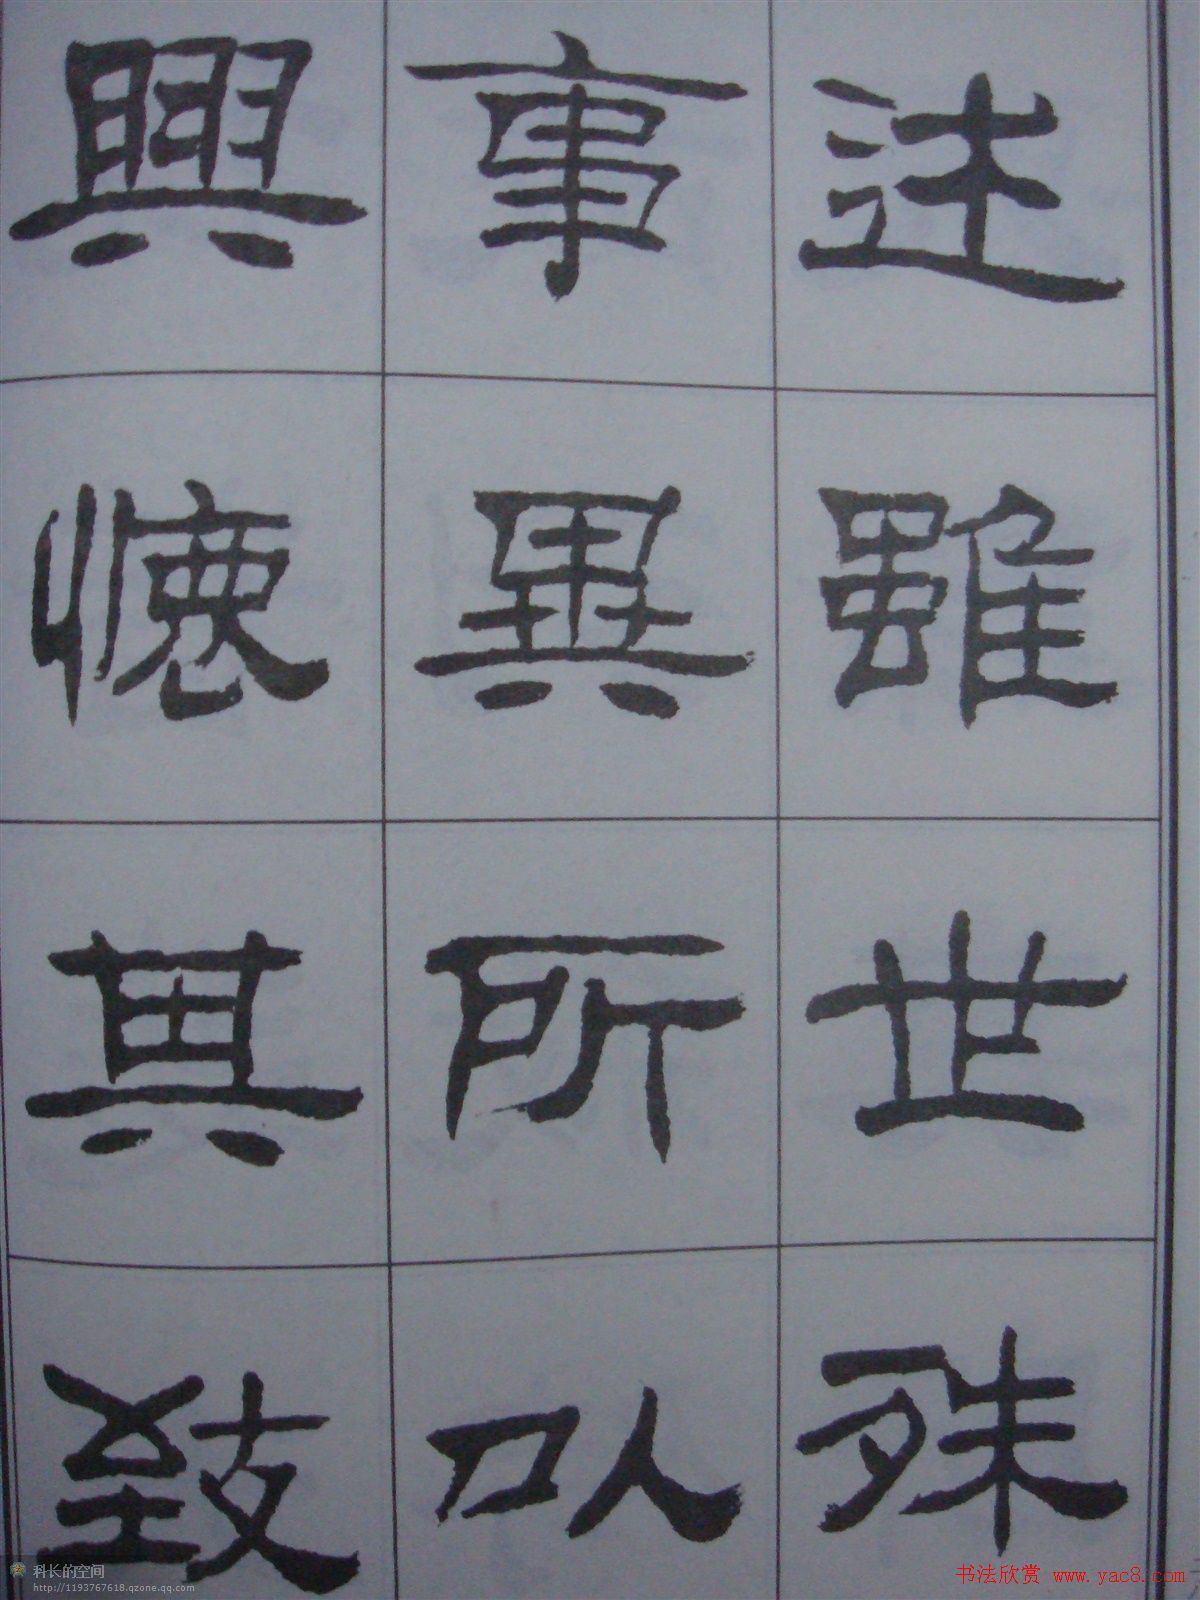 述雖世殊
事異所以
興懷其致
科长的空间
http://1193767618.qzone.qq.com
书法欣赏 www.yac8.com